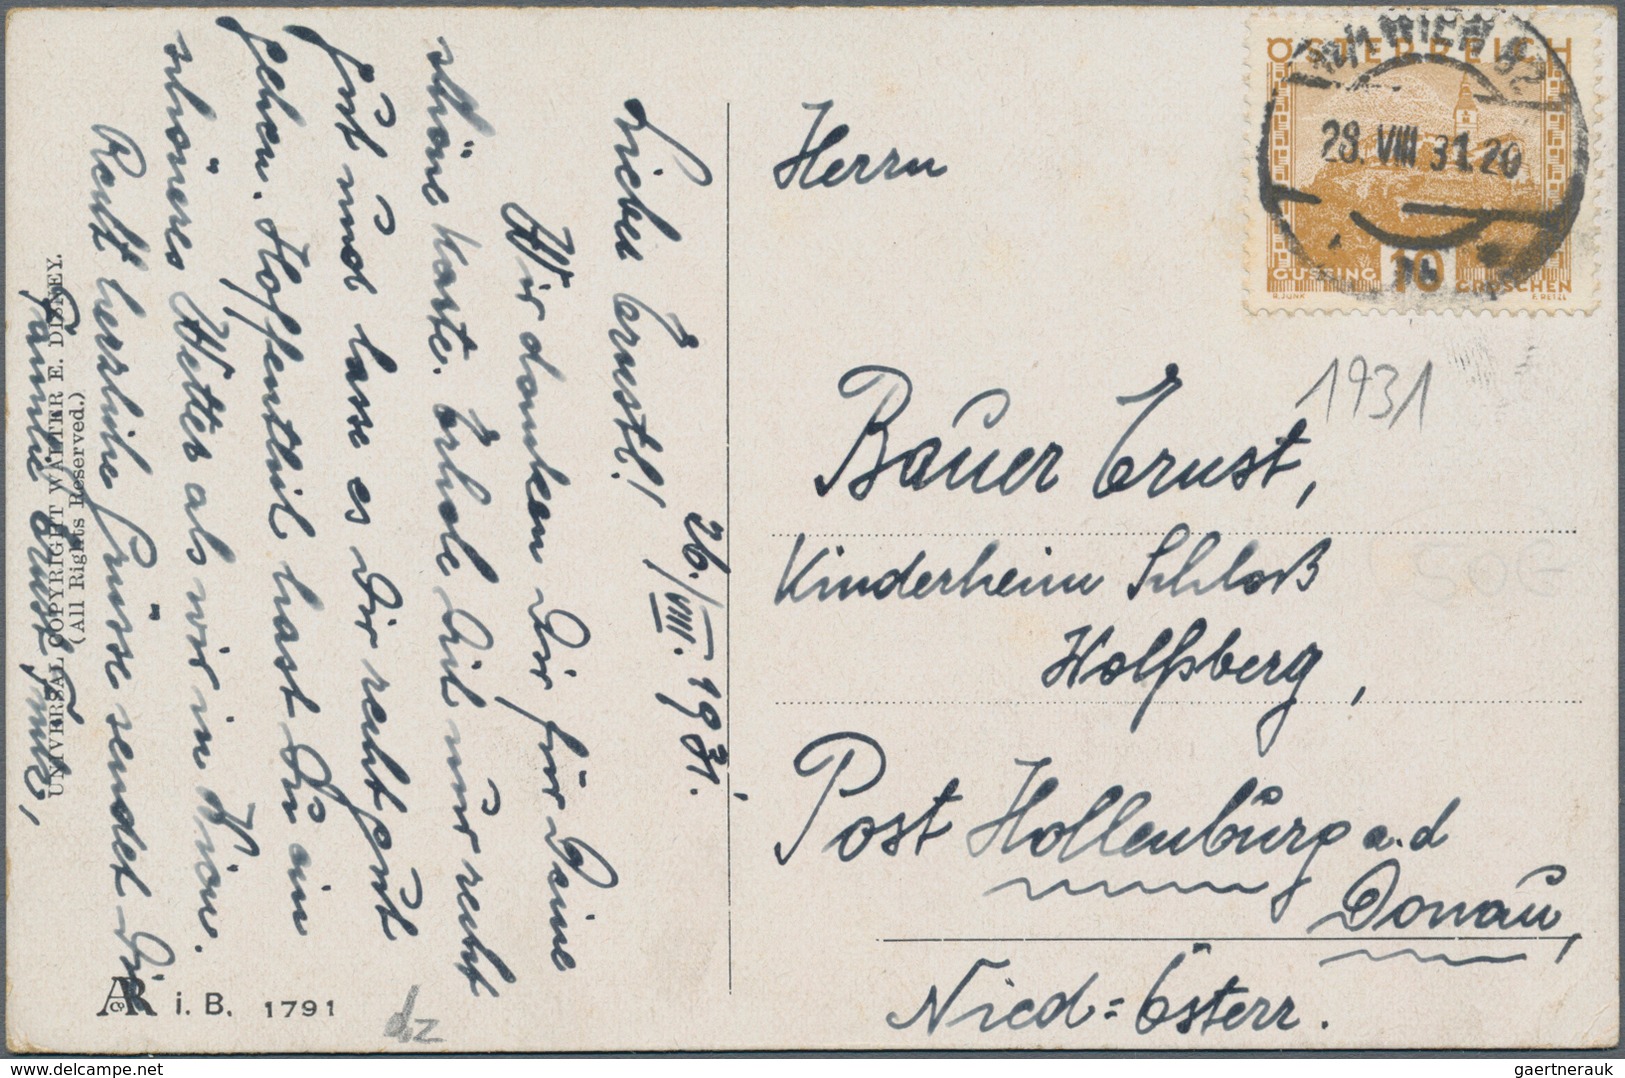 26./VIII. 1931.
Lieber Ernstl!
Wir danken Dir für Deine
schöne Karte. Erhole Dich nur recht
gut und lasse es Dir recht gut
gehen. Hoffentlich hast Du ein
schöneres Wetter als wir in Wien.
Recht herzliche Grüsse sendet Dir
Familie
UNIVERSAL COPYRIGHT WALTER E. DISNEY.
(All Rights Reserved.)
AR i. B. 1791
dz
ÖSTERREICH
WIEN 82
28. VIII 31. 20
GÜSSING 10 GROSCHEN
R. JUNK F. RETZL
Herrn
1931
Bauer Ernst,
Kinderheim Schloß
Wolfsberg,
Post Hollenburg a. d
Donau,
Nied=Österr.
50€
www.delcampe.net
gaertnerauk